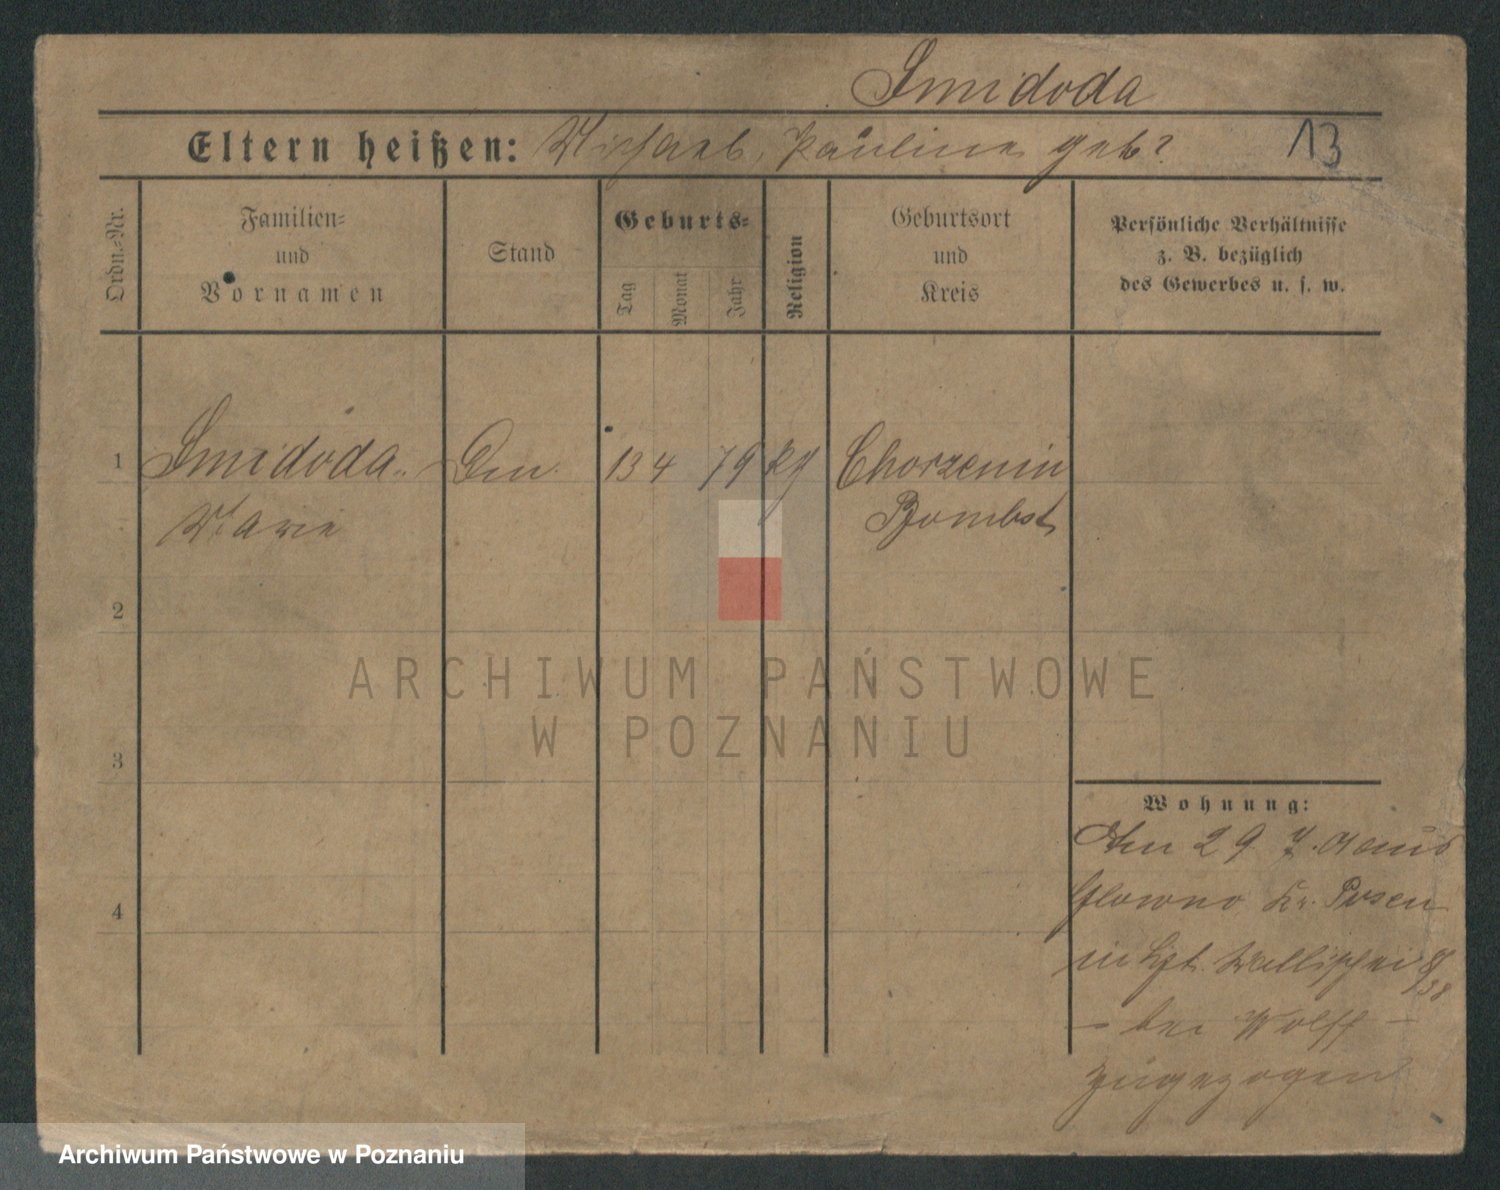 Smidoda
Eltern heißen: Michael, Pauline geb?
13
Ordn.-Nr.
Familien-
und
Vornamen
Stand
Geburts-
Tag
Monat
Jahr
Religion
Geburtsort
und
Kreis
Persönliche Verhältnisse
z. B. bezüglich
des Gewerbes u. s. w.
1
Smidoda
13 4 79
Chorzenin
Marie
Bomst
2
ARCHIWUM PAŃSTWOWE
W POZNANIU
3
Wohnung:
Am 29 7. aus
Glowno Kr. Posen
4
in Wallischei
bei Wolff
zugezogen
Archiwum Państwowe w Poznaniu